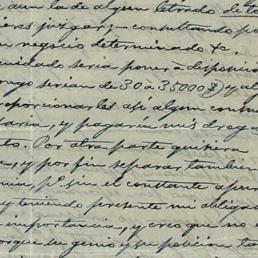 aun la de algun letrado de to
juzgar; consultando po
negocio determinado &c.
cuidado seria poner a disposicio
serian de 30 á 35000 y al
proporcionarles asi algun con
y pagaria mis droga
to. Por otra parte quisiera
y por fin separar tambien
pr. fin el constante apur
y teniendo presente mi obliga
importancia, y creo que no
porque su genio y su posicion ta